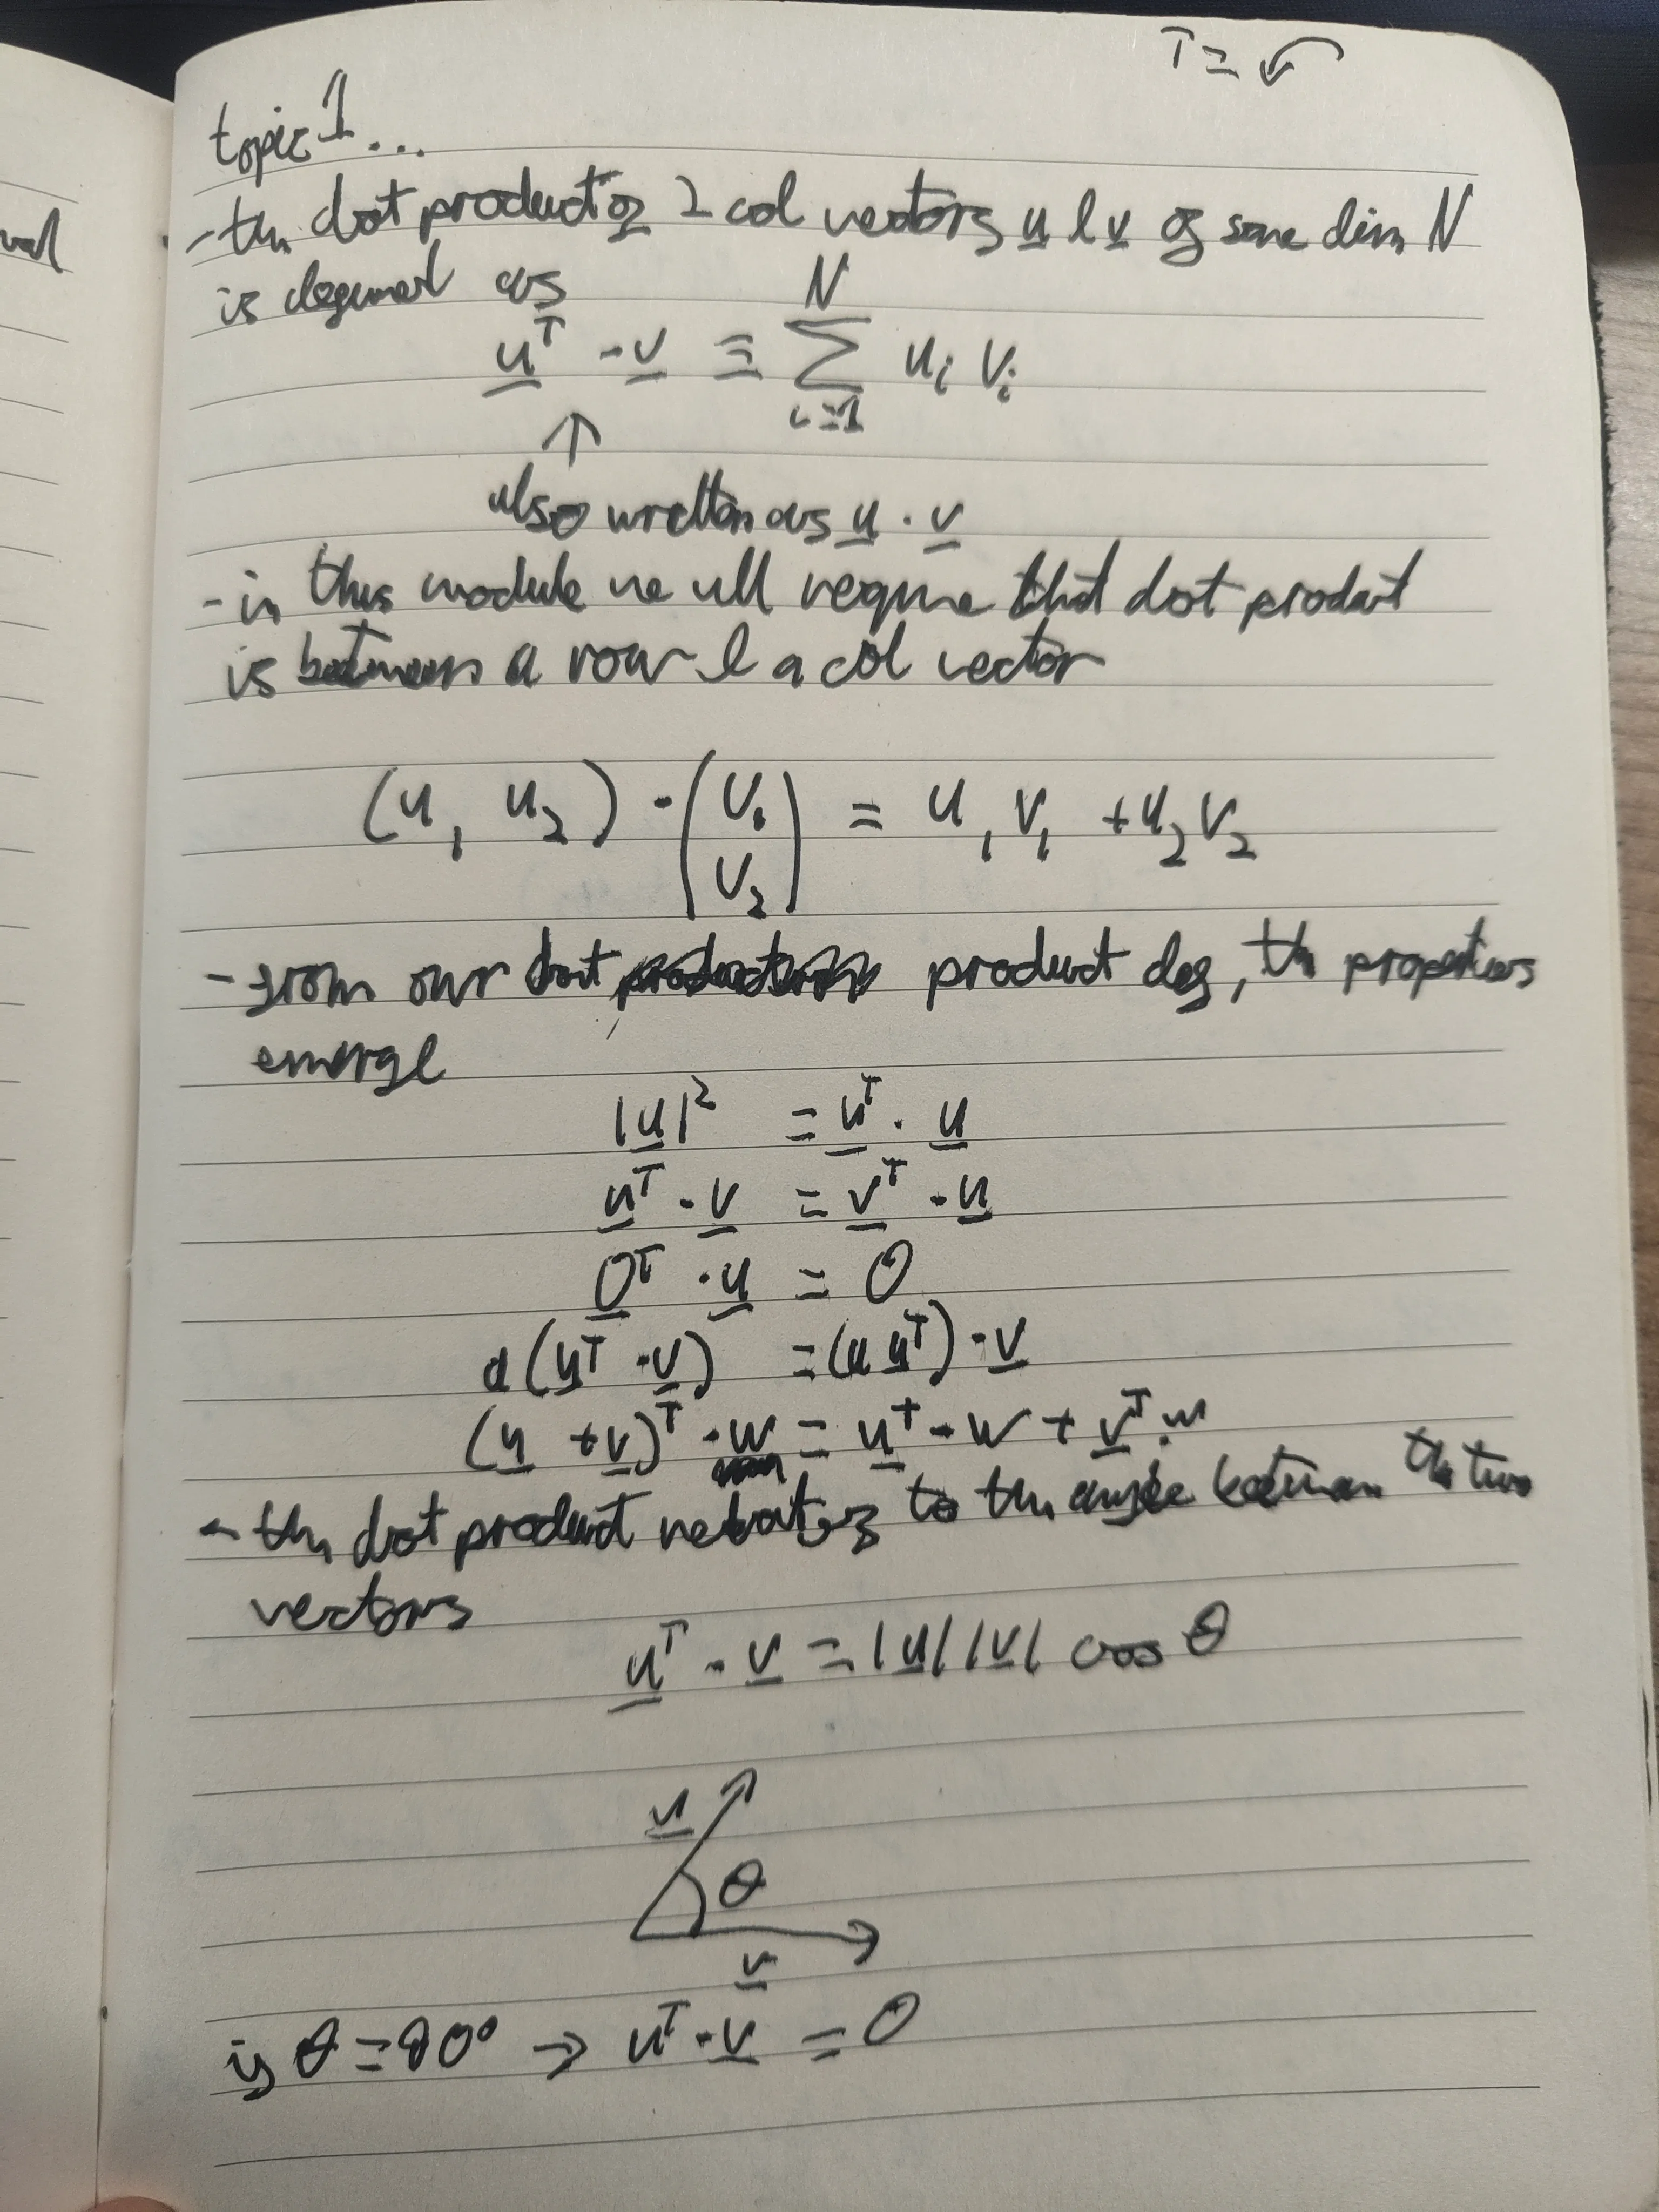 T =
topic 1...
- the dot product of 2 col vectors u & v of same dim N
is defined as
u^T · v ≡ ∑_{i=1}^{N} u_i v_i
↑
also written as u · v
- in this module we all require that dot product
is between a row & a col vector
(u_1 u_2) · (v_1 v_2) = u_1 v_1 + u_2 v_2
- from our dot product def, the properties
emerge
|u|² = u^T · u
u^T · v = v^T · u
0^T · u = 0
a(u^T · v) = (a u^T) · v
(u + v)^T · w = u^T · w + v^T · w
- the dot product relates to the angle between the two
vectors
u^T · v = |u||v| cos θ
u
θ
v
if θ = 90° → u^T · v = 0